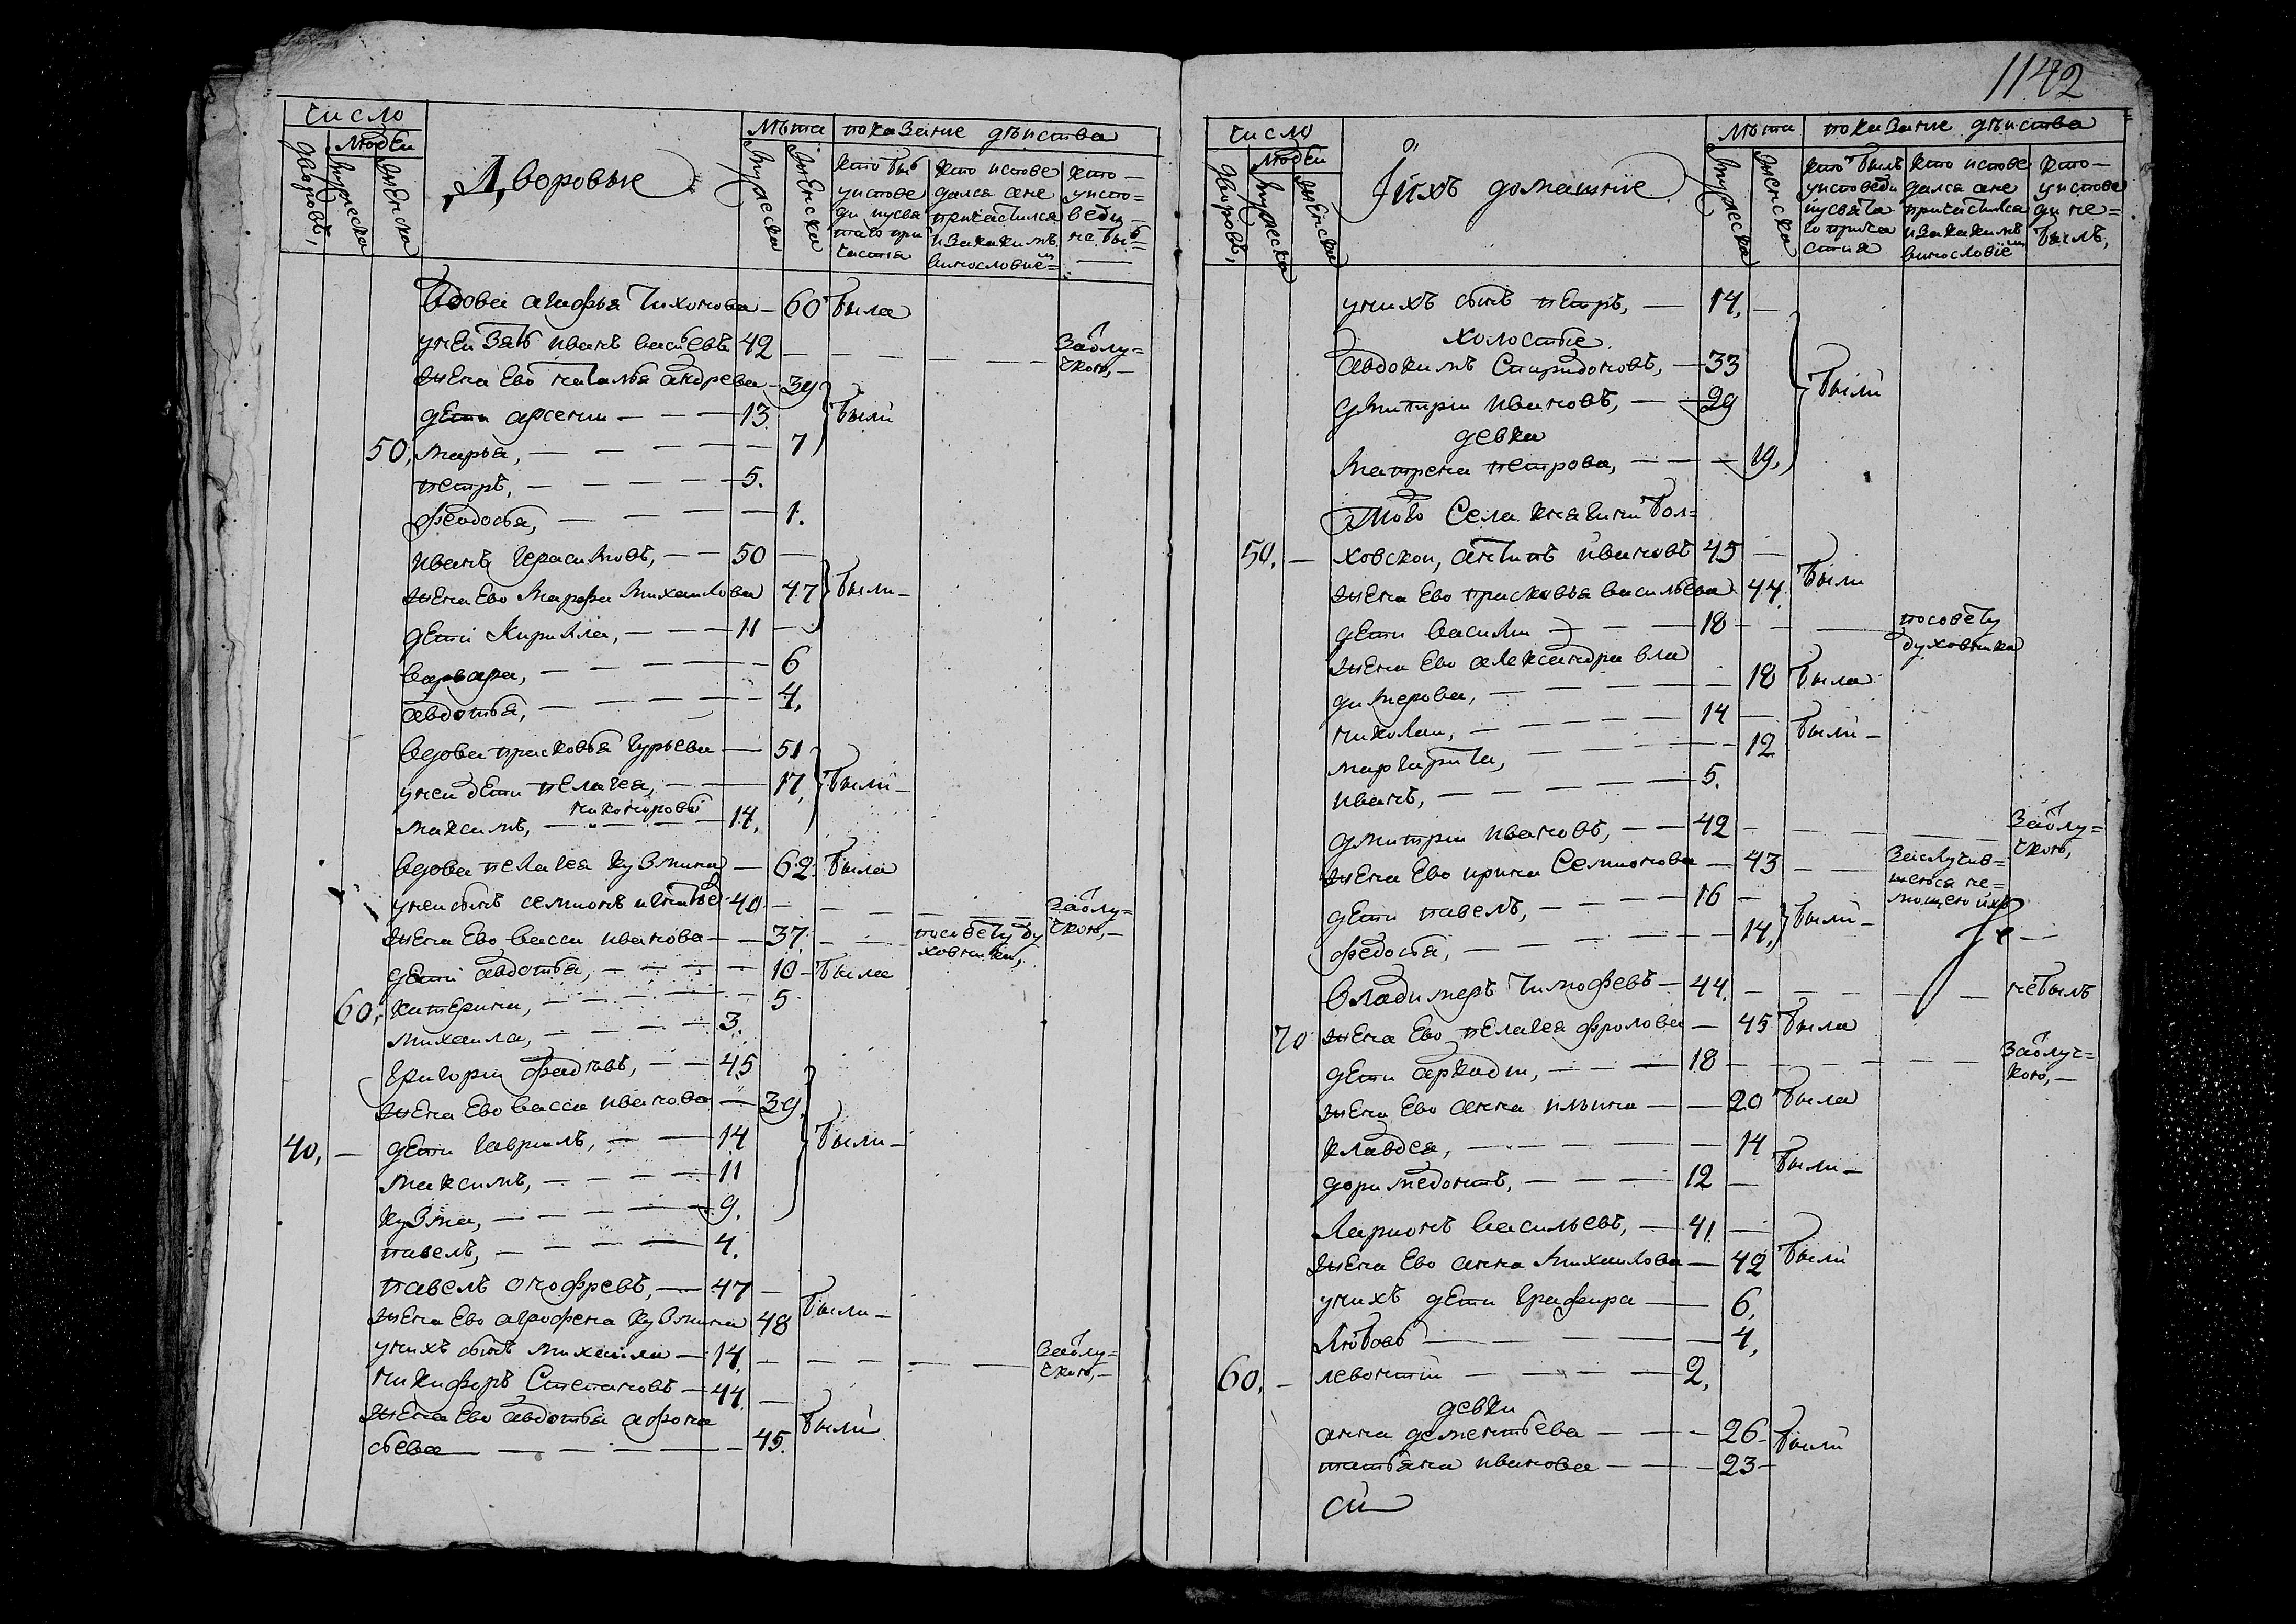 число
людей
дворовъ,
мужеска
женска
Дворовые
лѣта
мужеска
женска
показание дѣиства
кто был
уиспове
ди иусвя
таго при
частия
кто испове
дался ане
причастился
изакакимъ
винословием
кто —
уиспо=
веди —
не был
вдова агафья тихонова — 60 была
унеи зять иванъ васильевъ 42 — — — — — заотлу=
чкою, —
жена ево наталья андрева — 39
дети арсении — — — 13. были
50, марья, — — — — 7
петръ, — — — — 5.
феодосья, — — — — 1.
иванъ герасимовъ, — — 50 —
жена ево марфа михаилова 47 были —
дети кирилла, — — — 11 —
варвара, — — — — 6
авдотья, — — — — 4.
вдова прасковья гурьева — 51
унеи дети пелагея, — — — 17, были —
никоноровы
максимъ, — — — — 14.
вдова пелагея кузмина — 62. была
унеи сынъ семионъ игнатьев 40 — — — — — заотлу=
чкою, —
жена ево васса иванова — — 37. — — посовету ду
ховника,
дети авдотья, — — — — 10 — была
60, катерина, — — — — 5
михаила, — — — — 3.
григории фадѣевъ, — — 45
жена ево васса иванова — 39.
40, — дети гаврилъ, — — 14 были —
максимъ, — — — — 11
кузма, — — — — 9.
павелъ, — — — — 4.
павелъ онофревъ, — 47 —
жена ево агрофена кузмина 48 были —
унихъ сынъ михаила — 14, — — — — — заотлу=
чкою, —
никифоръ степановъ — 44. —
жена ево авдотья афона
сьева — — — — — 45. были
1142
число
людеи
дворовъ,
мужеска
женска
Иихъ домашние
лѣта
мужеска
женска
показание дѣиства
кто былъ
уисповеди
иусвята
го прича
стия
кто испове
дался ане
причастился
изакакимъ
винословием
кто —
уиспове
ди не=
былъ,
унихъ сынъ петръ, — 14, —
холостые
авдокимъ спиридоновъ, — 33
дмитрии ивановъ, — — 29 были
девка
матрена петрова, — — — 19,
этого села княгини вол=
50, — ховскои, антипъ ивановъ 45 —
жена ево прасковья васильева 44. были
дети василии — — — 18 — — — посовету
духовника
жена ево александра вла
димерова, — — — — 18 была
николаи, — — — — 14 —
маргарита, — — — — 12 были —
иванъ, — — — — 5.
дмитрии ивановъ, — — 42 — — — — — заотлу=
чкою,
жена ево ирина семионова — 43 — — заслучив=
шеюся не=
мощею ихъ
дети павелъ, — — — — 16 —
федосья, — — — — 14, были —
владимеръ тимофевъ — 44. — — — — — небылъ
70 жена ево пелагея фролова — 45 была
дети аркадии, — — — 18 — — — — — заотлуч=
кою, —
жена ево анна ильина — — 20 была
клавдея, — — — — 14
доримедонтъ, — — — 12 — были —
ларионъ васильевъ, — 41. —
жена ево анна михаилова — 42 были
унихъ дети графира — 6,
любовь — — — — 4,
60, — левонтии — — — — 2,
девки
анна дементьева — — — 26 — были
татьяна иванова — — — 23 —